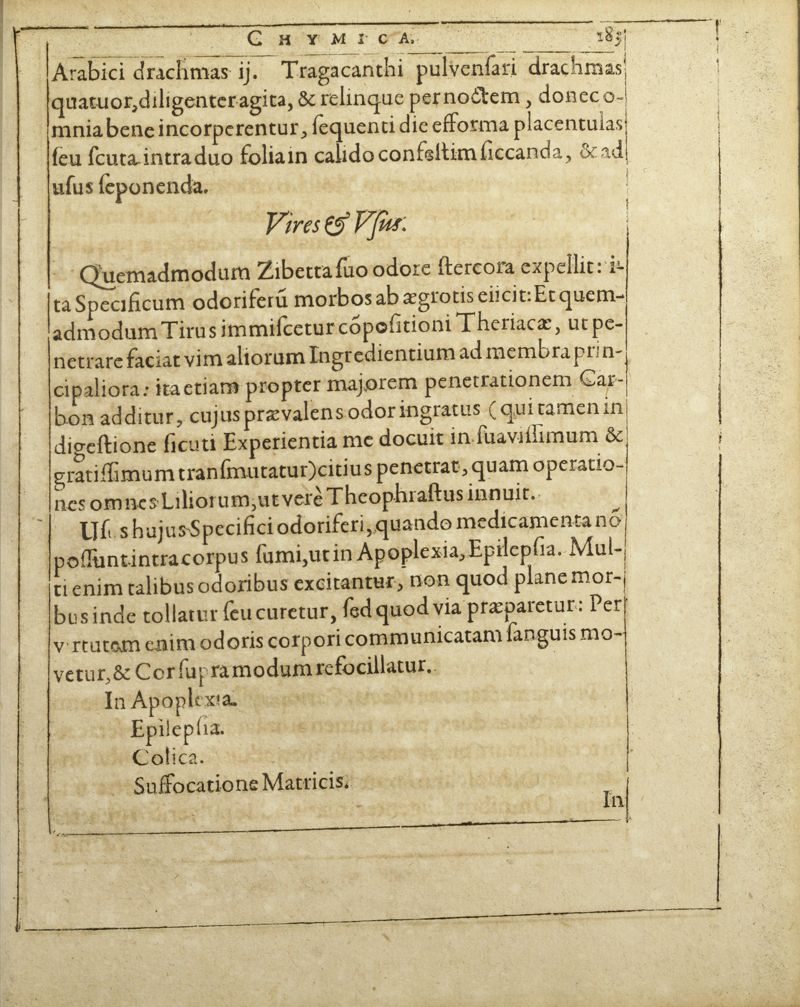 CHYMICA. 183
Arabici drachmas ij. Tragacanthi pulverisari drachmas
quatuor, diligenter agita, & relinque per noctem, donec o-
mnia bene incorperentur, sequenti die efforma placentulas
seu scuta intra duo folia in calido confestim siccanda, & ad
usus seponenda.
Vires & Vsus.
Quemadmodum Zibetta suo odore stercora expellit: i-
ta Specificum odoriferū morbos ab ægrotis eiicit: Et quem-
admodum Tirus immiscetur cōpositioni Theriacæ, ut pe-
netrare faciat vim aliorum Ingredientium ad membra prin-
cipaliora: ita etiam propter majorem penetrationem Car-
bon additur, cujus prævalens odor ingratus (qui tamen in
digestione sicuti Experientia me docuit in suavissimum &
gratissimum transmutatur) citius penetrat, quam operatio-
nes omnes Liliorum, ut verè Theophrastus innuit.
Usus hujus Specifici odoriferi, quando medicamenta nō
possunt intra corpus sumi, ut in Apoplexia, Epilepsia. Mul-
ti enim talibus odoribus excitantur, non quod plane mor-
bus inde tollatur seu curetur, sed quod via præparetur: Per
virtutem enim odoris corpori communicatam sanguis mo-
vetur, & Cor supra modum refocillatur.
In Apoplexia.
Epilepsia.
Colica.
Suffocatione Matricis.
In